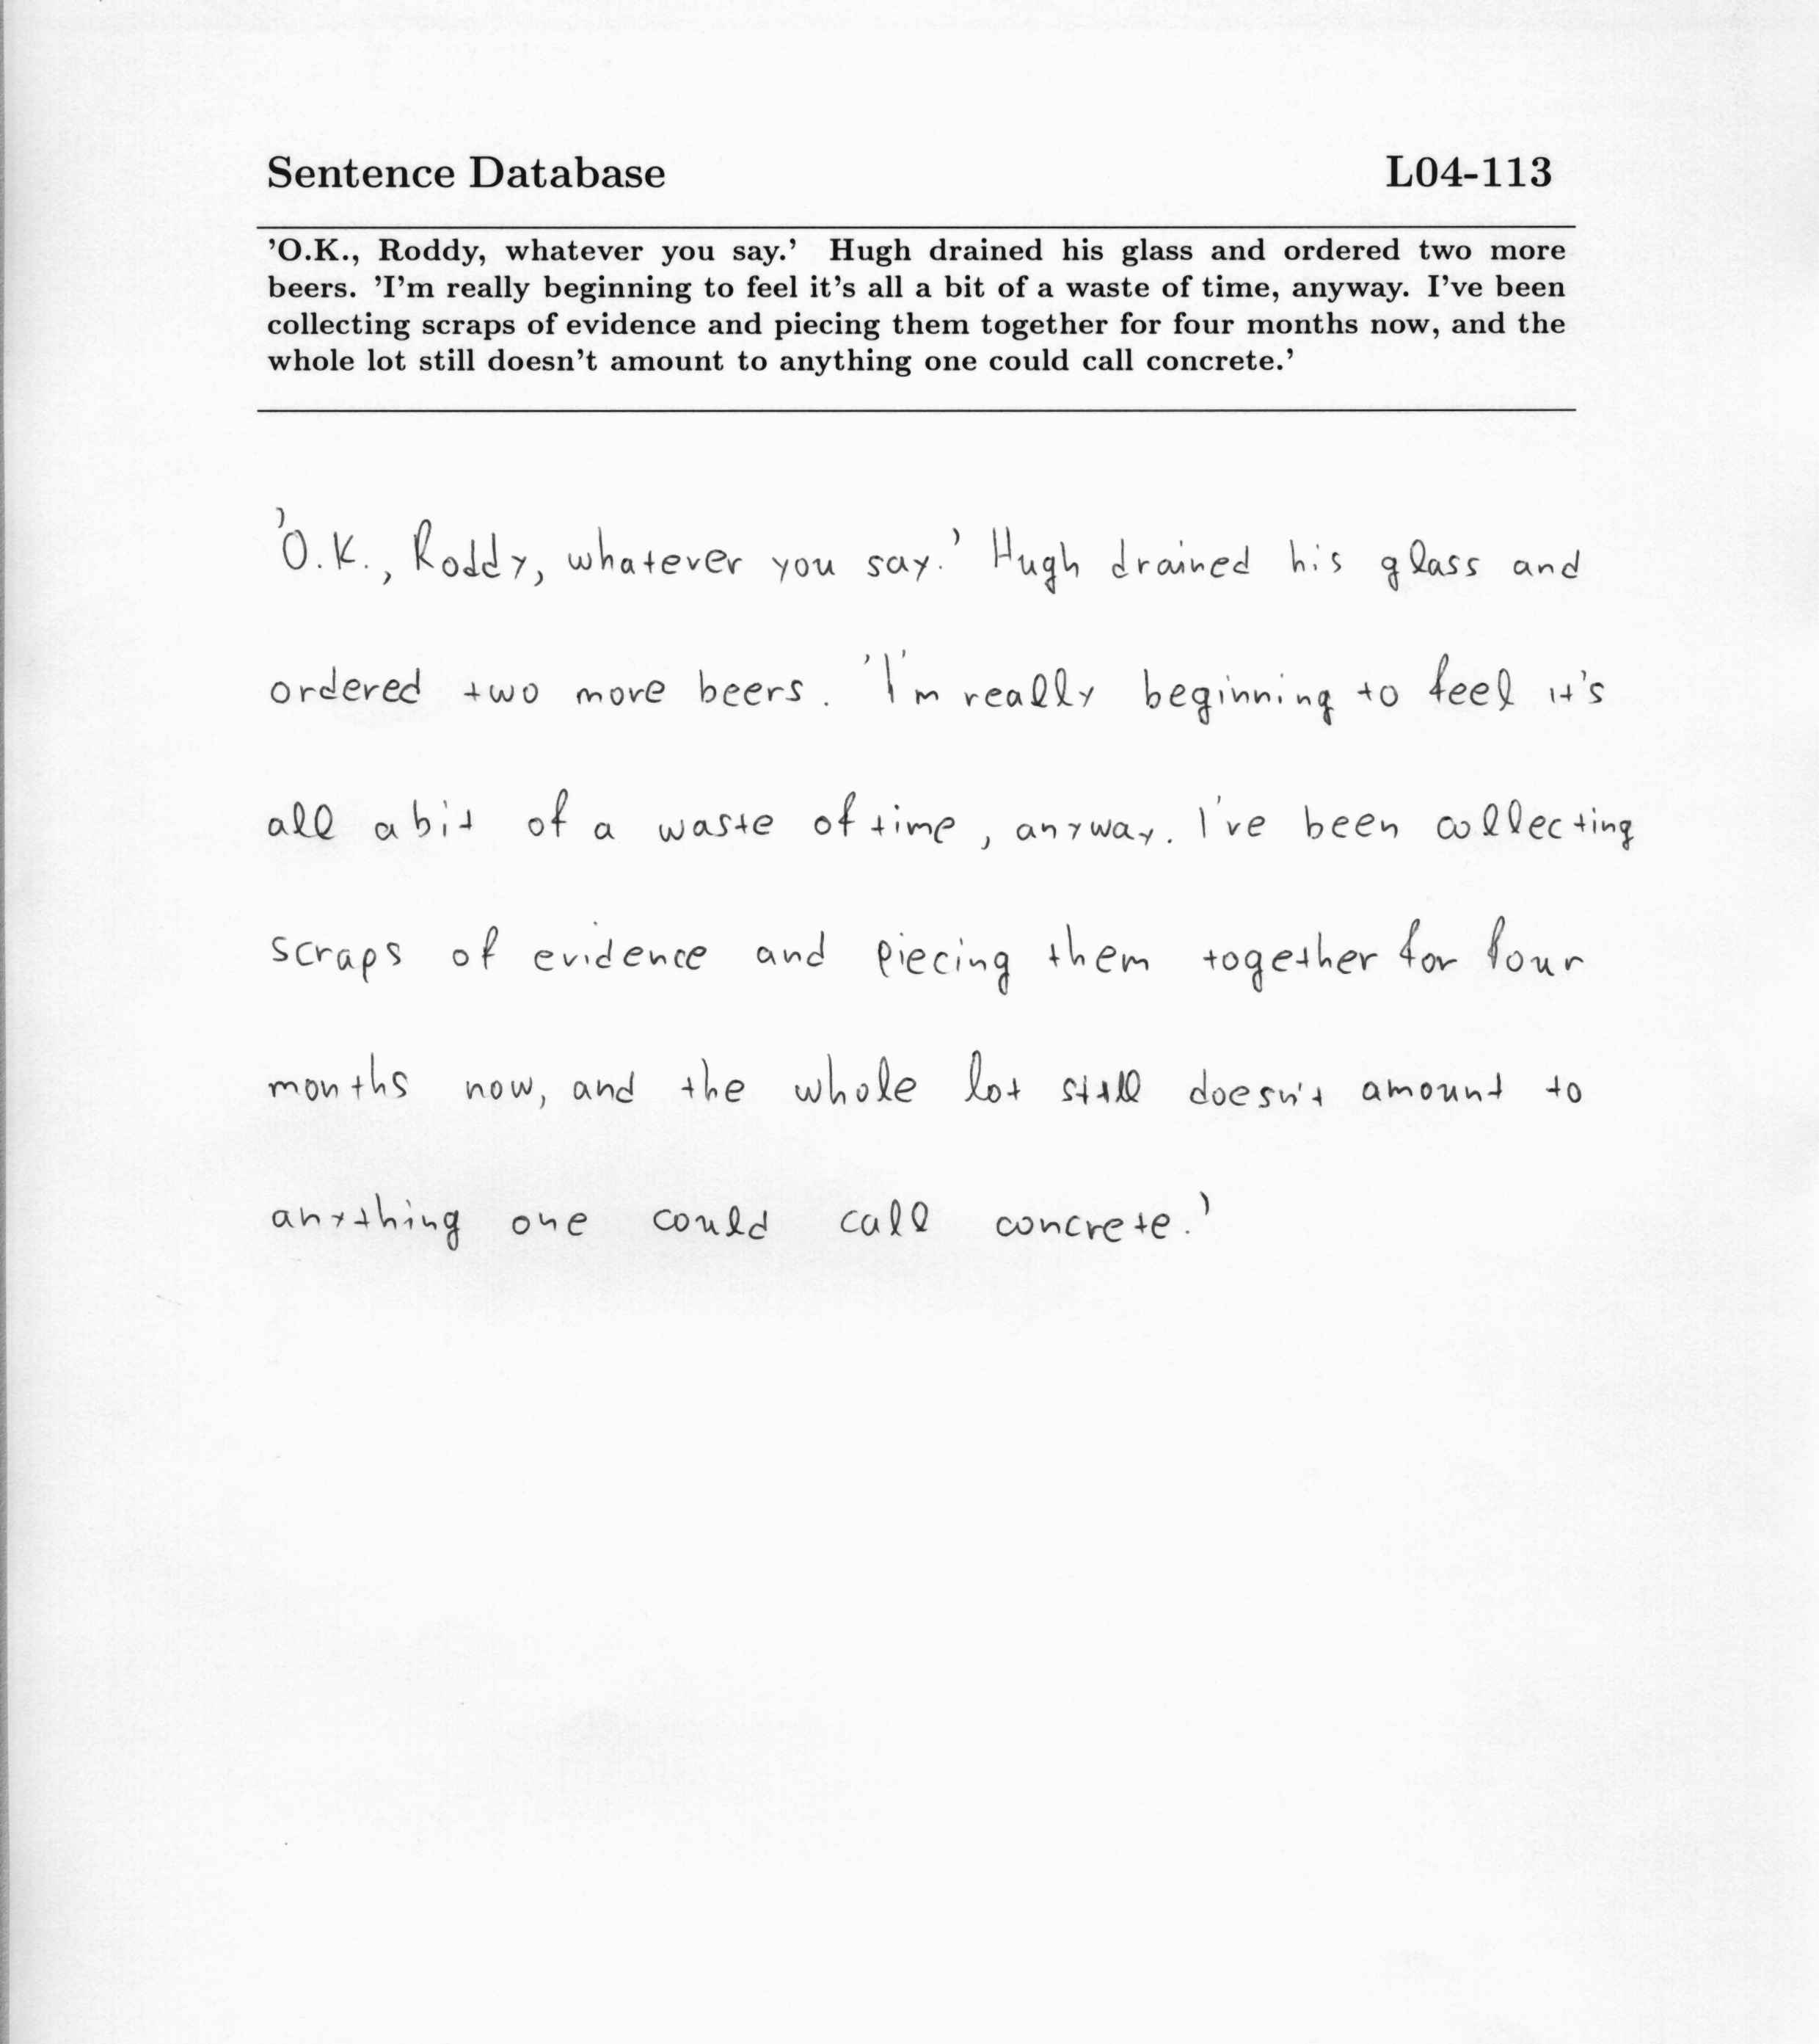 Sentence Database L04-113
'O.K., Roddy, whatever you say.' Hugh drained his glass and ordered two more
beers. 'I'm really beginning to feel it's all a bit of a waste of time, anyway. I've been
collecting scraps of evidence and piecing them together for four months now, and the
whole lot still doesn't amount to anything one could call concrete.'
'O.K., Roddy, whatever you say.' Hugh drained his glass and
ordered two more beers. 'I'm really beginning to feel it's
all a bit of a waste of time, anyway. I've been collecting
scraps of evidence and piecing them together for four
months now, and the whole lot still doesn't amount to
anything one could call concrete.'